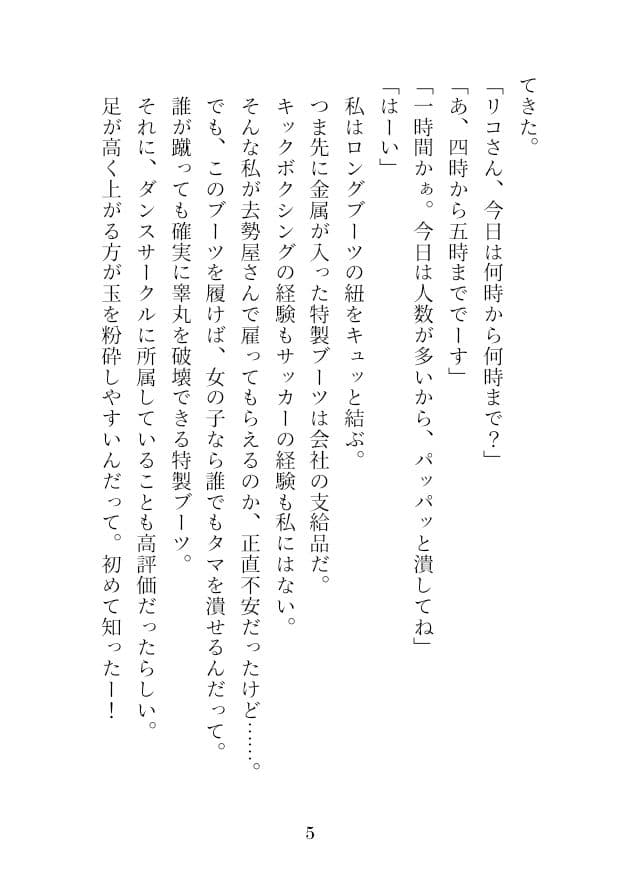 てきた。
「リコさん、今日は何時から何時まで？」
「あ、四時から五時まででーす」
「一時間かぁ。今日は人数が多いから、パッパッと潰してね」
「はーい」
私はロングブーツの紐をキュッと結ぶ。
つま先に金属が入った特製ブーツは会社の支給品だ。
キックボクシングの経験もサッカーの経験も私にはない。
そんな私が去勢屋さんで雇ってもらえるのか、正直不安だったけど……。
でも、このブーツを履けば、女の子なら誰でもタマを潰せるんだって。
誰が蹴っても確実に睾丸を破壊できる特製ブーツ。
それに、ダンスサークルに所属していることも高評価だったらしい。
足が高く上がる方が玉を粉砕しやすいんだって。初めて知ったー！
5